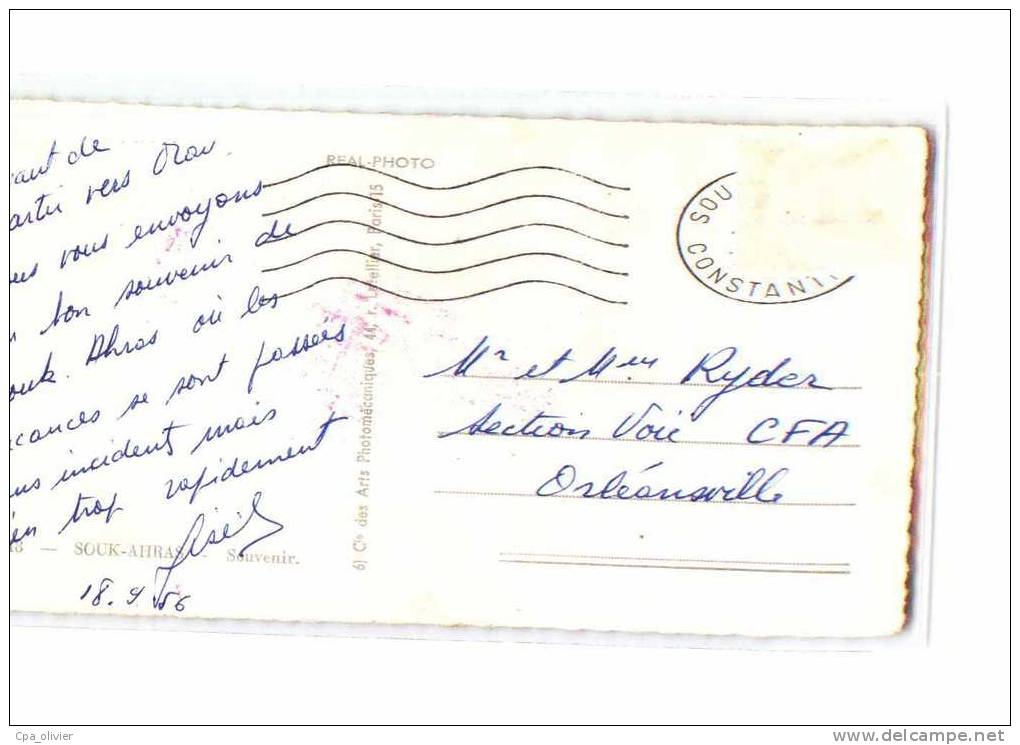 de
vers Oran
vous envoyons
bon souvenir de
Ahras où les
se sont passées
incident mais
trop rapidement
18 — SOUK-AHRAS — Souvenir.
18.9.56
REAL-PHOTO
6) Cie des Arts Photomécaniques, 44, r. Letellier, Paris-15
SOU
CONSTANTI
Mr et Mme Ryder
Section Voie CFA
Orléansville
Cpa_olivier
www.delcampe.net